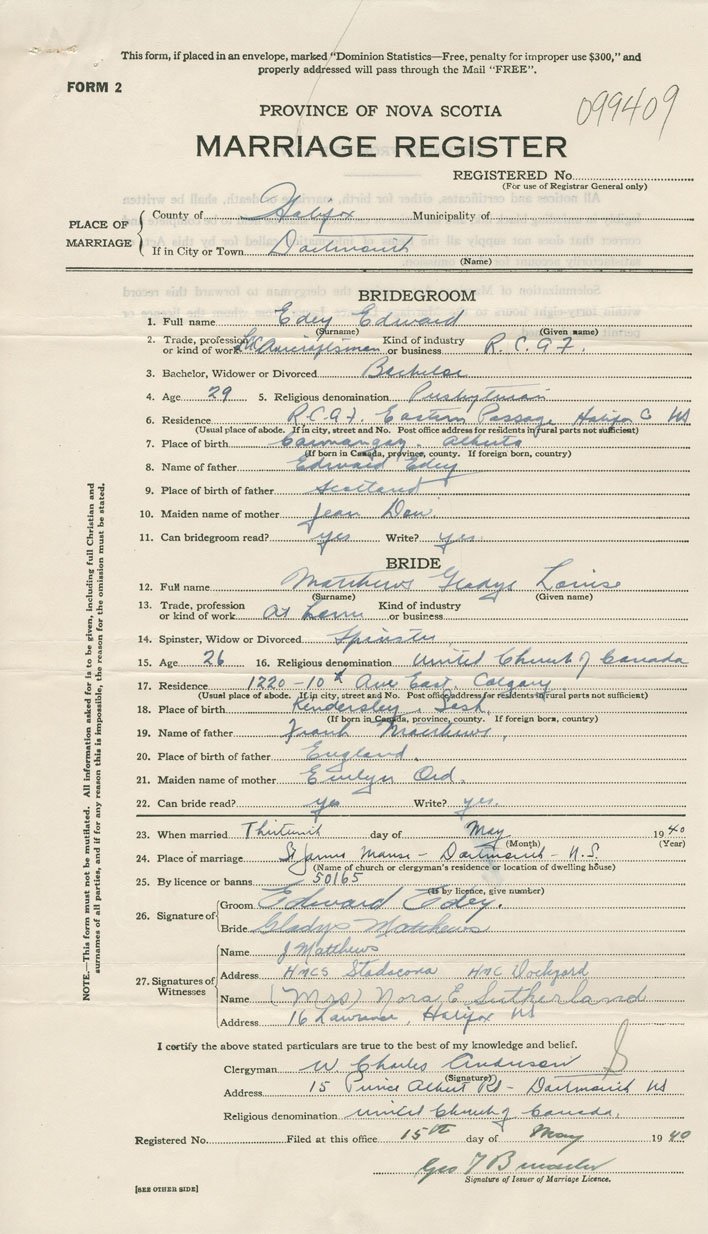 This form, if placed in an envelope, marked "Dominion Statistics—Free, penalty for improper use $300," and
properly addressed will pass through the Mail "FREE".
FORM 2
099409
PROVINCE OF NOVA SCOTIA
MARRIAGE REGISTER
REGISTERED No.
(For use of Registrar General only)
PLACE OF MARRIAGE
County of Halifax Municipality of
If in City or Town Dartmouth
(Name)
BRIDEGROOM
1. Full name Edey Edward
(Surname) (Given name)
2. Trade, profession or kind of work Aircraftsman Kind of industry or business R.C.A.F.
3. Bachelor, Widower or Divorced Bachelor
4. Age 29 5. Religious denomination Presbyterian
6. Residence R.C.A.F. Eastern Passage Halifax C NS
(Usual place of abode. If in city, street and No. Post office address for residents in rural parts not sufficient)
7. Place of birth Carmangay, Alberta
(If born in Canada, province, county. If foreign born, country)
8. Name of father Edward Edey
9. Place of birth of father Scotland
10. Maiden name of mother Jean Dow
11. Can bridegroom read? yes Write? yes.
BRIDE
12. Full name Matthews Gladys Louise
(Surname) (Given name)
13. Trade, profession or kind of work At home Kind of industry or business
14. Spinster, Widow or Divorced Spinster
15. Age 26 16. Religious denomination United Church of Canada
17. Residence 1220-10th Ave East, Calgary
(Usual place of abode. If in city, street and No. Post office address for residents in rural parts not sufficient)
18. Place of birth Kindersley, Sask.
(If born in Canada, province, county. If foreign born, country)
19. Name of father Frank Matthews,
20. Place of birth of father England.
21. Maiden name of mother Emelyn Ord.
22. Can bride read? yes Write? yes.
23. When married Thirteenth day of May 1940
(Month) (Year)
24. Place of marriage St James Manse - Dartmouth - N.S.
(Name of church or clergyman's residence or location of dwelling house)
25. By licence or banns 50165
(If by licence, give number)
26. Signature of
Groom Edward Edey.
Bride Gladys Matthews
27. Signatures of Witnesses
Name J Matthews
Address HMCS Stadacona HMC Dockyard
Name (Mrs) Nora E Sutherland
Address 16 Lawrence, Halifax NS
I certify the above stated particulars are true to the best of my knowledge and belief.
Clergyman W Charles Anderson
(Signature)
Address 15 Prince Albert Rd - Dartmouth NS
Religious denomination United Church of Canada.
Registered No. Filed at this office 15th day of May 1940
Geo
Signature of Issuer of Marriage Licence.
[SEE OTHER SIDE]
NOTE.—This form must not be mutilated. All information asked for is to be given, including full Christian and
surnames of all parties, and if for any reason this is impossible, the reason for the omission must be stated.